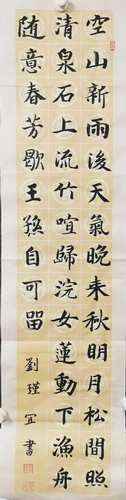 空山新雨後天氣晚来秋明月松間照
清泉石上流竹喧歸浣女蓮動下漁舟
随意春芳歇王孫自可留
劉瑾宜書